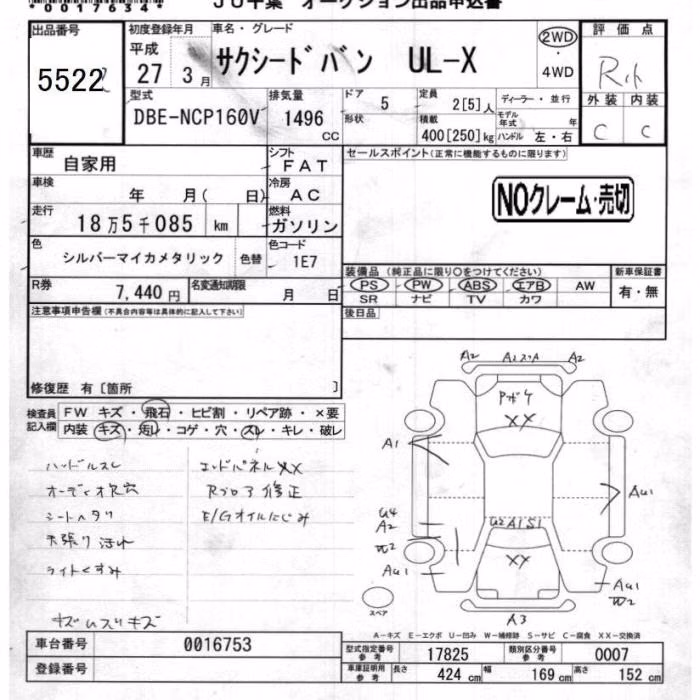 *0017634*
JU千葉 オークション出品申込書
出品番号 5522
初度登録年月 平成 27 3月
車名・グレード サクシードバン UL-X
2WD・4WD
評価点
外装 内装
C C
型式 DBE-NCP160V
排気量 1496 CC
ドア 5
形状
定員 2[5]人
積載 400[250]kg
ディーラー・並行
モデル年式 年
ハンドル 左・右
車歴 自家用
シフト FAT
セールスポイント(正常に機能するものに限ります)
車検 年 月( 日)
冷房 AC
NOクレーム・売切
走行 18万5千085 km
燃料 ガソリン
色 シルバーマイカメタリック 色替
色コード 1E7
装備品(純正品に限り○をつけてください)
PS PW ABS エアB AW
SR ナビ TV カワ
新車保証書 有・無
R券 7,440円
名変通知期限 月 日
後日品
注意事項申告欄(不具合内容等は具体的に記入して下さい)
修復歴 有〔箇所 〕
検査員記入欄
FW キズ・飛石・ヒビ割・リペア跡・×要
内装 キズ・汚レ・コゲ・穴・スレ・キレ・破レ
ハンドルスレ
オーディオ穴
シートヘタリ
天張り汚れ
ライトくすみ
エンドパネルXX
Rフロア修正
E/Gオイルにじみ
A2 A2
XX
A1
AU1
U4
A2
U2A1S1
W2
XX
AU1
AU1
W2
スペア
A3
A-キズ E-エクボ U-凹み W-補修跡 S-サビ C-腐食 XX-交換済
車台番号 0016753
登録番号
型式指定番号 参考 17825
類別区分番号 参考 0007
車庫証明用 参考 長さ 424 cm 幅 169 cm 高さ 152 cm